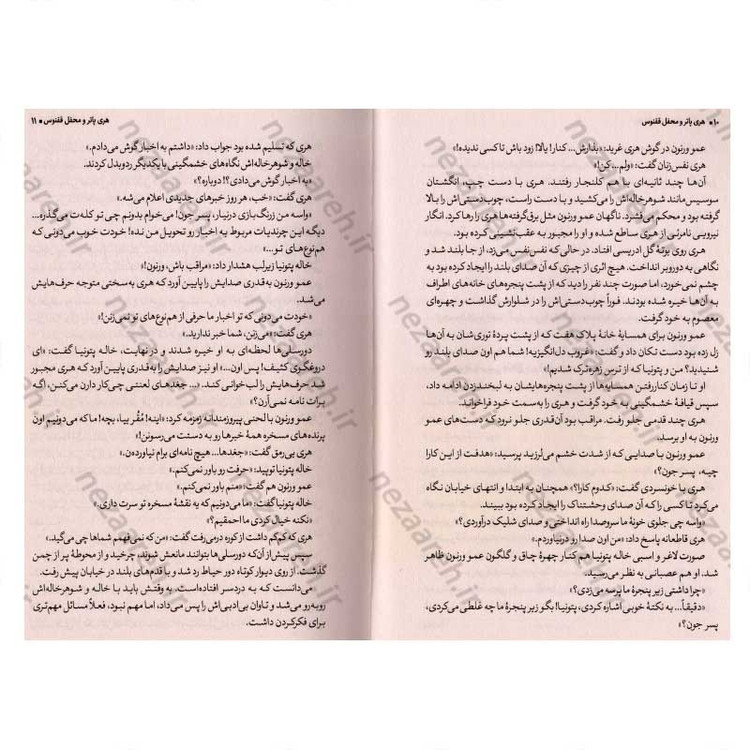 ۱۰ • هری پاتر و محفل ققنوس
عمو ورنون در گوش هری غرید: «بذارش... کنار! یالا! زود باش تا کسی ندیده!»
هری نفس‌زنان گفت: «ولم... کن!»
آن‌ها چند ثانیه‌ای با هم کلنجار رفتند. هری با دست چپ، انگشتان
سوسیس‌مانند شوهرخاله‌اش را می‌کشید و با دست راست، چوب‌دستی‌اش را بالا
گرفته بود و محکم می‌فشرد. ناگهان عمو ورنون مثل برق‌گرفته‌ها هری را رها کرد. انگار
نیرویی نامرئی از هری ساطع شده و او را مجبور به عقب‌نشینی کرده بود.
هری روی بوتهٔ گل ادریسی افتاد. در حالی که نفس‌نفس می‌زد، از جا بلند شد و
نگاهی به دوروبر انداخت. هیچ اثری از چیزی که آن صدای بلند را ایجاد کرده بود به
چشم نمی‌خورد، اما صورت چند نفر را دید که از پشت پنجره‌های خانه‌های اطراف
به آن‌ها خیره شده بودند. فوراً چوب‌دستی‌اش را در شلوارش گذاشت و چهره‌ای
معصوم به خود گرفت.
عمو ورنون برای همسایهٔ خانهٔ پلاک هفت که از پشت پردهٔ توری‌شان به آن‌ها
زل زده بود دست تکان داد و گفت: «غروب دل‌انگیزیه! شما هم اون صدای بلند رو
شنیدید؟ من و پتونیا که از ترس زهره‌ترک شدیم!»
او تا زمان کناررفتن همسایه‌ها از پشت پنجره‌هایشان به لبخندزدن ادامه داد،
سپس قیافهٔ خشمگینی به خود گرفت و هری را به‌سمت خود فراخواند.
هری چند قدمی جلو رفت. مراقب بود آن‌قدری جلو نرود که دست‌های عمو
ورنون به او برسد.
عمو ورنون با صدایی که از شدت خشم می‌لرزید پرسید: «هدفت از این کارا
چیه، پسر جون؟»
هری با خونسردی گفت: «کدوم کارا؟» همچنان به ابتدا و انتهای خیابان نگاه
می‌کرد تا کسی را که آن صدای وحشتناک را ایجاد کرده بود ببیند.
«واسه چی جلوی خونهٔ ما سروصدا راه انداختی و صدای شلیک درآوردی؟»
هری قاطعانه پاسخ داد: «من اون صدا رو درنیاوردم.»
صورت لاغر و اسبی خاله پتونیا هم کنار چهرهٔ چاق و گلگون عمو ورنون ظاهر
شد. او هم عصبانی به نظر می‌رسید.
«چرا داشتی زیر پنجرهٔ ما پرسه می‌زدی؟»
«دقیقاً... به نکتهٔ خوبی اشاره کردی، پتونیا! بگو زیر پنجرهٔ ما چه غلطی می‌کردی،
پسر جون؟»
هری پاتر و محفل ققنوس • ۱۱
هری که تسلیم شده بود جواب داد: «داشتم به اخبار گوش می‌دادم.»
خاله و شوهرخاله‌اش نگاه‌های خشمگینی با یکدیگر ردوبدل کردند.
«به اخبار گوش می‌دادی؟! دوباره؟»
هری گفت: «خب، هر روز خبرهای جدیدی اعلام می‌شه.»
«واسه من زرنگ‌بازی درنیار، پسر جون! می‌خوام بدونم چی تو کله‌ت می‌گذره...
دیگه این چرندیات مربوط به اخبار رو تحویل من نده! خودت خوب می‌دونی که
هم‌نوع‌های تو...»
خاله پتونیا زیرلب هشدار داد: «مراقب باش، ورنون!»
عمو ورنون به‌قدری صدایش را پایین آورد که هری به‌سختی متوجه حرف‌هایش
می‌شد.
«خودت می‌دونی که تو اخبار ما حرفی از هم‌نوع‌های تو نمی‌زنن!»
هری گفت: «می‌زنن، شما خبر ندارید.»
دورسلی‌ها لحظه‌ای به او خیره شدند و در نهایت، خاله پتونیا گفت: «ای
دروغگوی کثیف! پس اون...» او نیز صدایش را به‌قدری پایین آورد که هری مجبور
شد حرف‌هایش را لب‌خوانی کند. «... جغدهای لعنتی چی‌کار دارن می‌کنن، اگه
برات نامه نمی‌آرن؟»
عمو ورنون با لحنی پیروزمندانه زمزمه کرد: «اینه! مُقُر بیا، بچه! ما که می‌دونیم اون
پرنده‌های مسخره همهٔ خبرها رو به دستت می‌رسونن!»
هری بی‌رمق گفت: «جغدها... هیچ نامه‌ای برام نیاوردن.»
خاله پتونیا توپید: «حرفت رو باور نمی‌کنم.»
عمو ورنون هم گفت: «منم باور نمی‌کنم.»
خاله پتونیا گفت: «ما می‌دونیم که یه نقشهٔ مسخره تو سرت داری.»
«نکنه خیال کردی ما احمقیم؟»
هری که کم‌کم داشت از کوره درمی‌رفت گفت: «من که نمی‌فهمم شماها چی می‌گید.»
سپس پیش از آن‌که دورسلی‌ها بتوانند مانعش شوند، چرخید و از محوطهٔ پر از چمن
گذشت. از روی دیوار کوتاه دور حیاط رد شد و با قدم‌های بلند در خیابان پیش رفت.
می‌دانست که به دردسر افتاده‌است. به وقتش باید با خاله و شوهرخاله‌اش
روبه‌رو می‌شد و تاوان بی‌ادبی‌اش را پس می‌داد، اما مهم نبود، فعلاً مسائل مهم‌تری
برای فکرکردن داشت.
nezaareh.ir